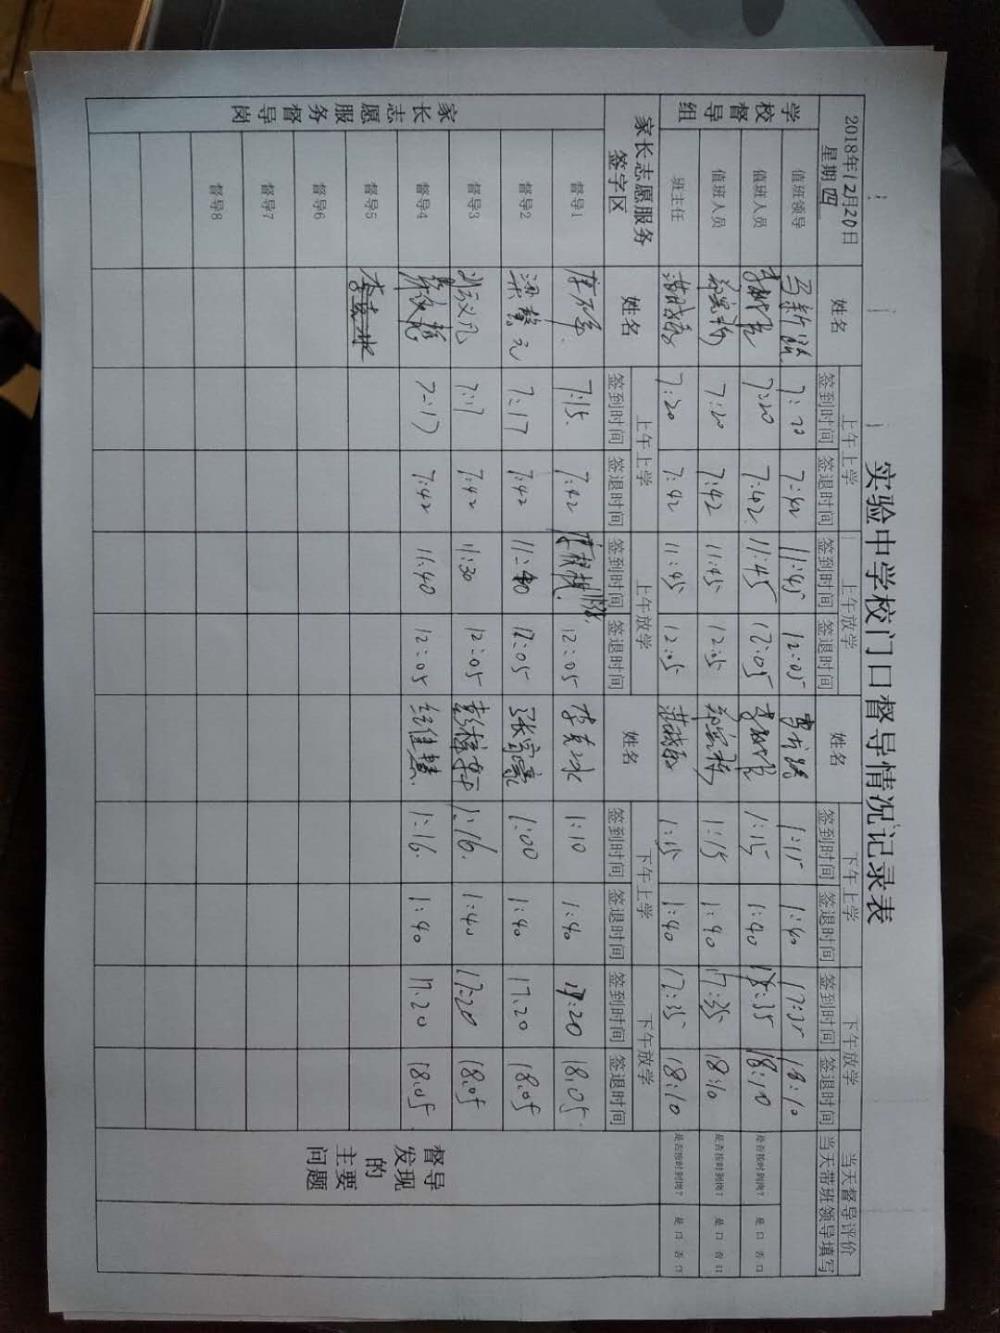 实验中学校门口督导情况记录表
2018年12月20日 星期四 姓名 上午上学 上午放学 姓名 下午上学 下午放学 当天督导评价
签到时间 签退时间 签到时间 签退时间 签到时间 签退时间 签到时间 签退时间 当天带班领导填写
学校督导组
值班领导 7:20 7:42 11:45 12:05 1:15 1:40 17:35 18:10
值班人员 7:20 7:42 11:45 12:05 1:15 1:40 18:10 是否按时到岗? 是口 否口
值班人员 7:20 7:42 11:45 1:15 1:40 17:35 18:10 是否按时到岗? 是口 否口
班主任 7:20 7:42 11:45 1:15 1:40 17:35 18:10 是否按时到岗? 是口 否口
家长志愿服务签字区 姓名 上午上学 上午放学 姓名 下午上学 下午放学
签到时间 签退时间 签到时间 签退时间 签到时间 签退时间 签到时间 签退时间
家长志愿服务督导岗
督导1 7:15 7:42 12:05 1:10 1:40 18:05
督导2 梁馨元 7:17 7:42 11:40 12:05 张富豪 1:00 1:40 17:20 18:05
督导3 7:17 7:42 11:30 12:05 1:16 1:40 17:20 18:05
督导4 7:17 7:42 11:40 12:05 1:16 1:40 17:20 18:05
督导5
督导6
督导7
督导8
督导发现的主要问题